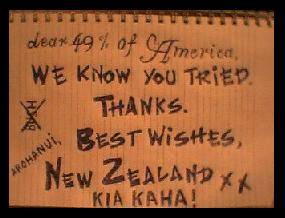 dear 49% of America,
WE KNOW YOU TRIED.
THANKS.
BEST WISHES,
AROHANUI,
NEW ZEALAND xx
KIA KAHA!